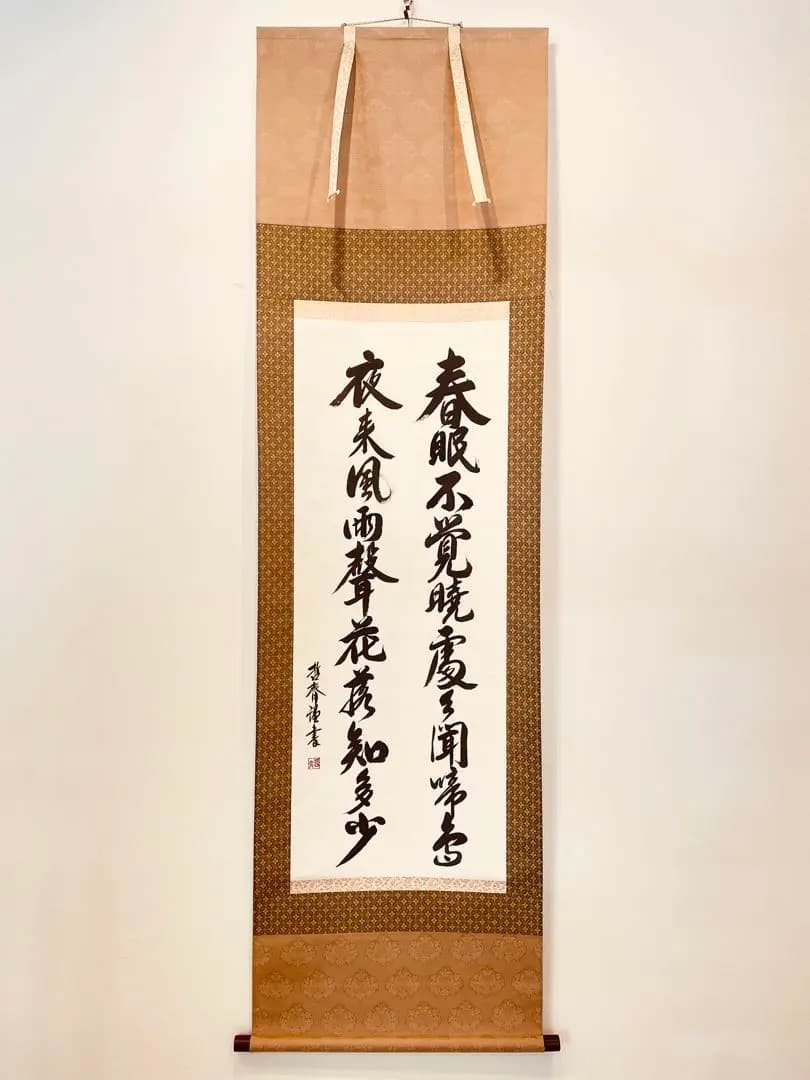 春眠不覚曉處々聞啼鳥
夜来風雨聲花落知多少
哲春謹書